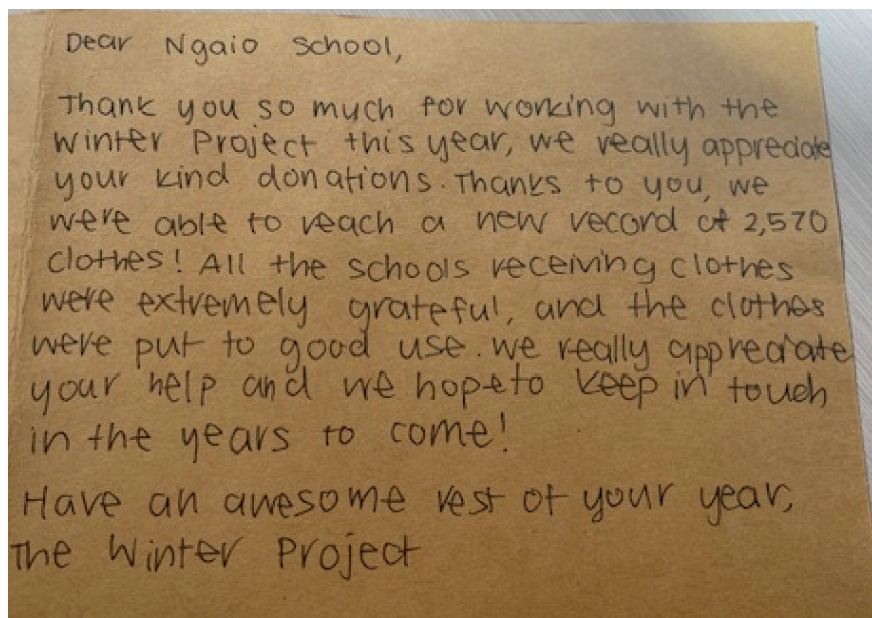 Dear Ngaio School,
Thank you so much for working with the
Winter Project this year, we really appreciate
your kind donations. Thanks to you, we
were able to reach a new record of 2,570
clothes! All the schools receiving clothes
were extremely grateful, and the clothes
were put to good use. We really appreciate
your help and we hope to keep in touch
in the years to come!
Have an awesome rest of your year,
The Winter Project